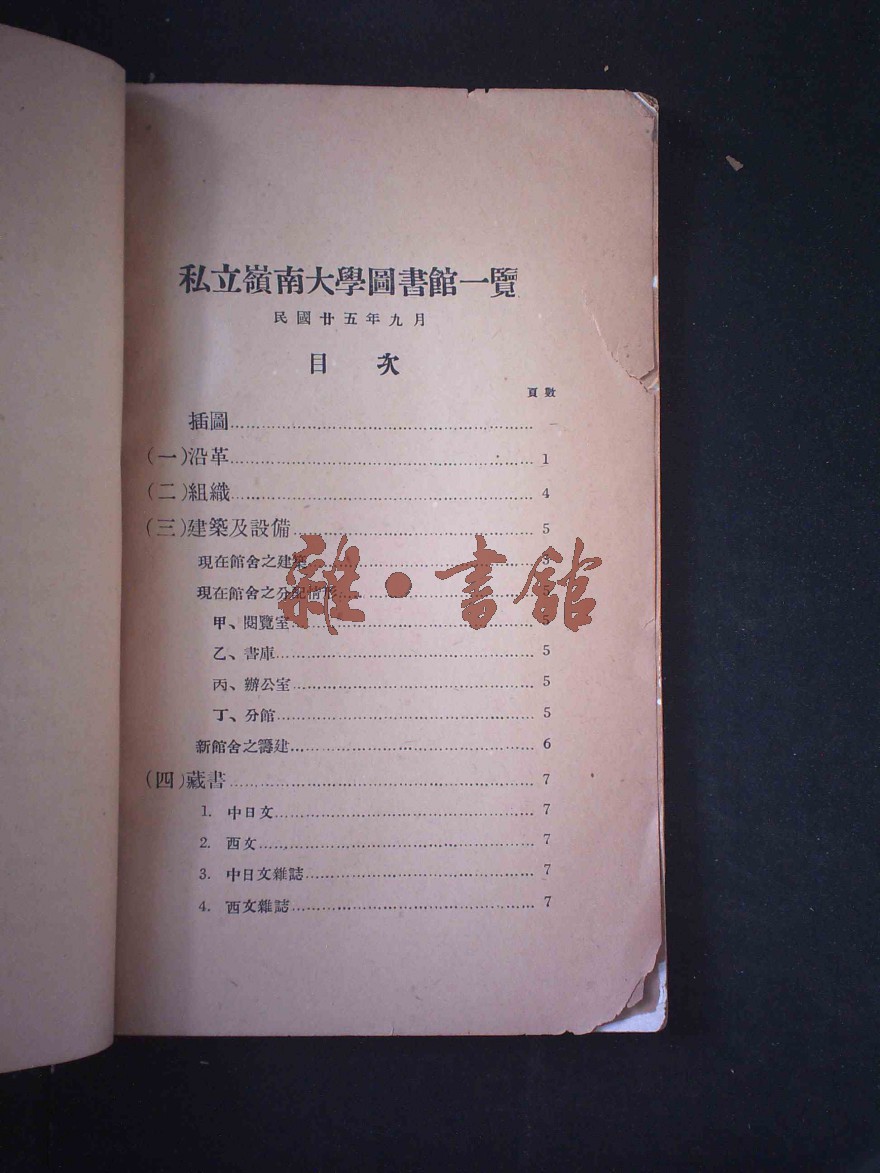 私立嶺南大學圖書館一覽
民國廿五年九月
目 次
頁數
插圖
(一)沿革 1
(二)組織 4
(三)建築及設備 5
現在館舍之建築 5
現在館舍之分配情形 5
甲、閱覽室 5
乙、書庫 5
丙、辦公室 5
丁、分館 5
新館舍之籌建 6
(四)藏書 7
1. 中日文 7
2. 西文 7
3. 中日文雜誌 7
4. 西文雜誌 7
雜·書館